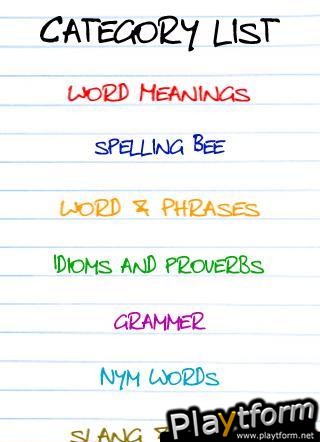 CATEGORY LIST
WORD MEANINGS
SPELLING BEE
WORD & PHRASES
IDIOMS AND PROVERBS
GRAMMER
NYM WORDS
SLANG &
Playtform
www.playtform.net